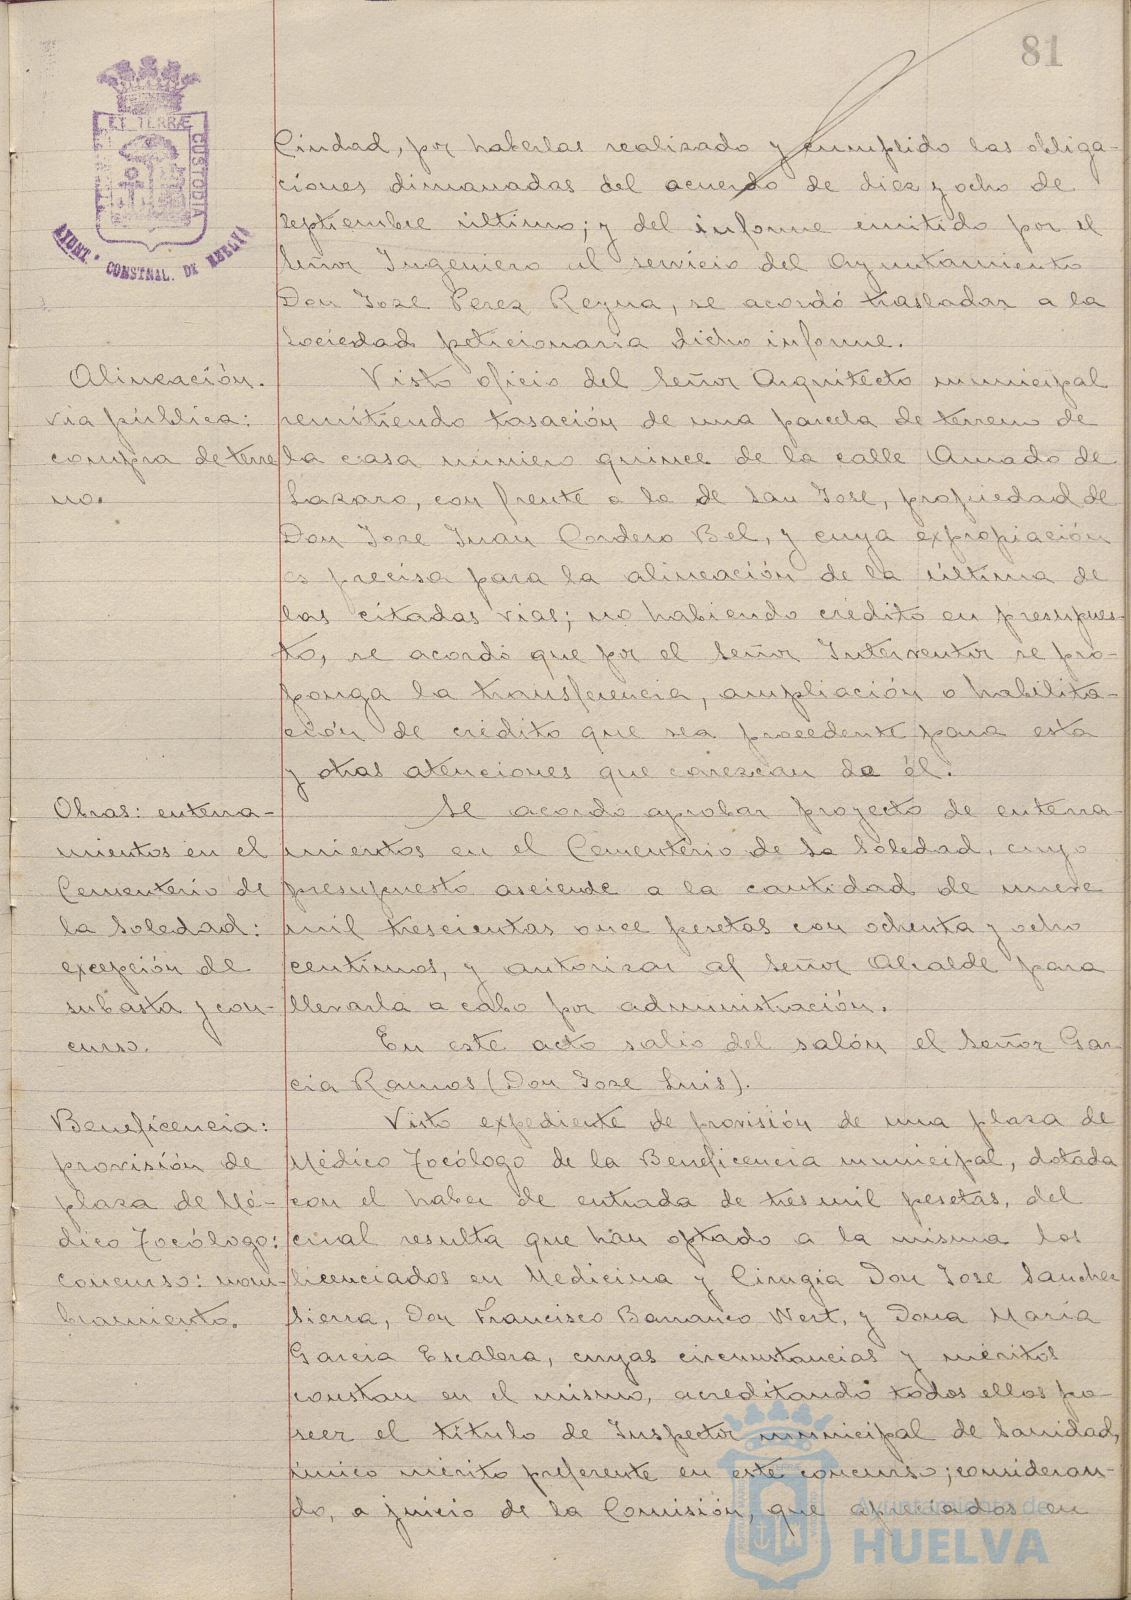 81
ET TERRÆ
CUSTODIA
AYUNT. CONSTNAL. DE HUELVA
Ciudad, por haberlas realizado y cumplido las obliga-
ciones dimanadas del acuerdo de diez y ocho de
Septiembre último; y del informe emitido por el
Señor Ingeniero al servicio del Ayuntamiento
Don Jose Perez Reyna, se acordó trasladar a la
Sociedad peticionaria dicho informe.
Alineación.
via pública:
compra de terre
no.
Visto oficio del Señor Arquitecto municipal
remitiendo tasación de una parcela de terreno de
la casa número quince de la calle Amado de
Lazaro, con frente a la de San Jose, propiedad de
Don Jose Juan Cordero Bel, y cuya expropiación
es precisa para la alineación de la última de
las citadas vias; no habiendo crédito en presupues-
to, se acordó que por el Señor Interventor se pro-
ponga la transferencia, ampliación o habilita-
ción de crédito que sea procedente para esta
y otras atenciones que carezcan de él.
Obras: enterra-
mientos en el
Cementerio de
la Soledad:
excepción de
subasta y con-
curso.
Se acordó aprobar proyecto de enterra-
mientos en el Cementerio de la Soledad, cuyo
presupuesto asciende a la cantidad de nueve
mil trescientas once pesetas con ochenta y ocho
centimos, y autorizar al Señor Alcalde para
llevarla a cabo por administración.
En este acto salió del salón el Señor Gar
cia Ramos (Don Jose Luis).
Beneficencia:
provisión de
plaza de Mé-
dico Tocólogo:
concurso: nom-
bramiento.
Visto expediente de provisión de una plaza de
Médico Tocólogo de la Beneficencia municipal, dotada
con el haber de entrada de tres mil pesetas, del
cual resulta que han optado a la misma los
licenciados en Medicina y Cirugia Don Jose Sanchez
Sierra, Don Francisco Barranco Wert, y Dona María
Garcia Escalera, cuyas circunstancias y méritos
constan en el mismo, acreditando todos ellos po-
seer el título de Inspector municipal de Sanidad,
único mérito preferente en este concurso; consideran-
do, a juicio de la Comisión, que apreciados en
Ayuntamiento de
HUELVA